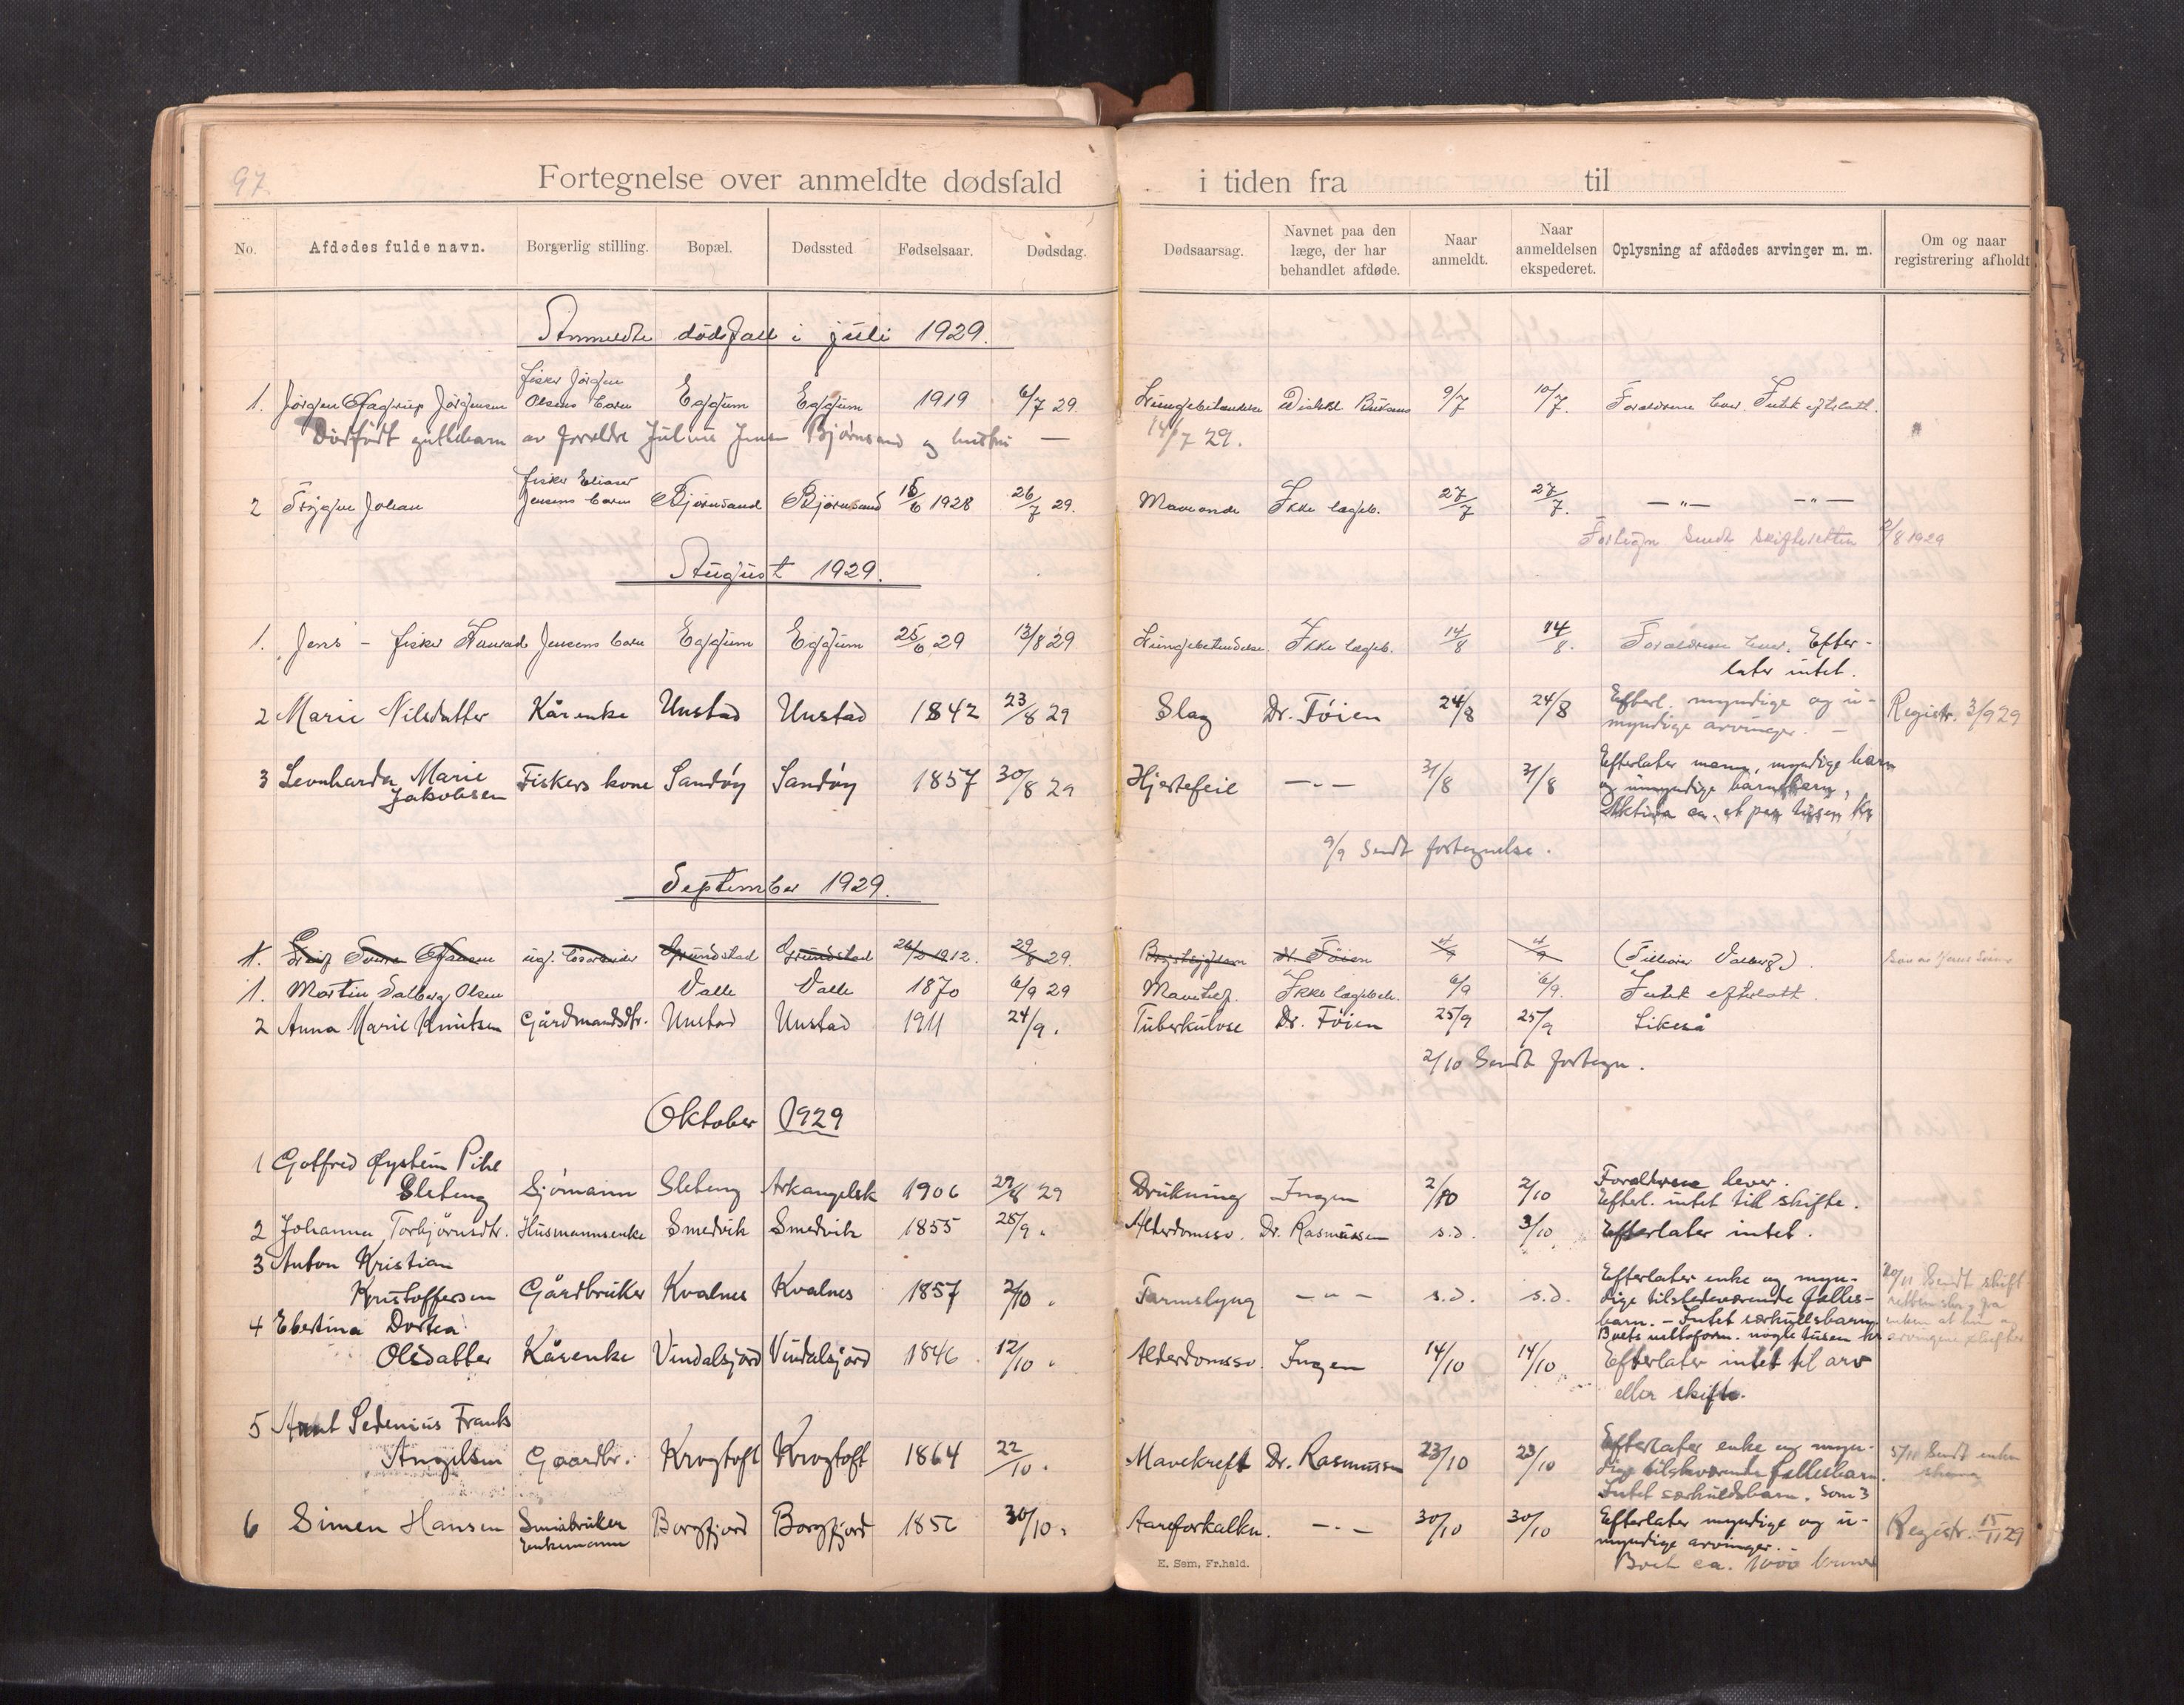 97.
Fortegnelse over anmeldte dødsfald i tiden fra til
No. Afdødes fulde navn. Borgerlig stilling. Bopæl. Dødssted Fødselsaar. Dødsdag. Dødsaarsag. Navnet paa den læge, der har behandlet afdøde. Naar anmeldt. Naar anmeldelsen ekspederet. Oplysning af afdødes arvinger m. m. Om og naar registrering afholdt
Anmeldte dødsfall i juli 1929.
fisker Jörgen
1. Jörgen Jörgensen Olsens barn Eggum Eggum 1919 6/7 29. Lungebetændelse 9/7 10/7. Forældrene lever. Intet efterlatt.
Dødfødt guttebarn av foreldre Julius Jensen Bjørnsand og hustru — 14/7 29.
fisker Eliaser
2 Trygve Johan Jensens barn Bjørnsand Bjørnsand 6 1928 26/7 29. Maveonde Ikke lægeb. 27/7 27/7. —"— —"—
Fortegn sendt skifteretten 2/8 1929
August 1929.
1. Jens - fisker Jensens barn Eggum Eggum 25/6 29 13/8 29. Lungebetændelse. Ikke lægeb. 14/8 14/8. Forældrene lever. Efter-
later intet.
2 Marie Nilsdatter Kårenke Unstad Unstad 1842 23/8 29 Slag Dr. Föien 24/8 24/8 Efterl. myndige og u- Registr. 3/9 29
myndige arvinger. —
3 Leonharda Marie Fiskers kone Sandöy Sandöy 1857 30/8 29 Hjertefeil —"— 31/8 31/8 Efterlater mann, myndige barn
Jakobsen og umyndige barnebarn,
Aktiva ca. et par tusen kr
9/9 sendt fortegnelse.
September 1929.
1. Hansen ug. Grundstad Grundstad 26/2 1912. 29/8 29. Dr. Föien (Tilhører Valberg)
1. Martin Dalberg Olsen Valle Valle 1870 6/9 29 Ikke lægebeh. 6/9 6/9. Intet efterlatt.
2 Anna Marie Knutsen Gårdmandsdtr. Unstad Unstad 1911 24/9. Tuberkulose Dr. Föien 25/9 25/9 Likeså
2/10 Sendt fortegn.
Oktober 1929
1 Gotfred Øystein Pihl Forældrene lever.
Slebeng Sjömann Slebeng Arkangelsk 1906 29/8 29 Drukning Ingen 2/10 2/10 Efterl. intet til skifte.
2 Johanna Torbjörnsdtr. Husmannsenke Smedvik Smedvik 1855 25/9. Alderdomssv. Dr. Rasmussen s.d. 3/10 Efterlater intet.
3 Anton Kristian Efterlater enke og myn- 20/11 Sendt skift
Kristoffersen Gårdbruker Kvalnes Kvalnes 1857 2/10. Tarmslyng —"— s.d. s.d. dige tilstedeværende felles-
4 Ebertina Dortea barn. - Intet særkullsbarn
Boets nettoform. nogle tusen kr
Olsdatter Kårenke Vindalsjord Vindalsjord 1846 12/10. Alderdomssv. Ingen 14/10 14/10 Efterlater intet til arv
eller skifte.
5 Arnt Sedenius Frants Efterlater enke og myn-
Angelsen Gaardbr. Krogtoft Krogtoft 1864 22/10. Mavekreft Dr. Rasmussen 23/10 23/10 dige tilsteværende fellesbarn. 5/11 Sendt enken
Intet særkuldsbarn. Som 3
6 Simen Hansen Småbruker Borgfjord Borgfjord 30/10. Aareforkalkn. —"— 30/10 30/10 Efterlater myndige og u- Registr. 15/11 29
Enkemann myndige arvinger. -
Boet ca. 1000 kroner
E. Sem, Fr.hald.